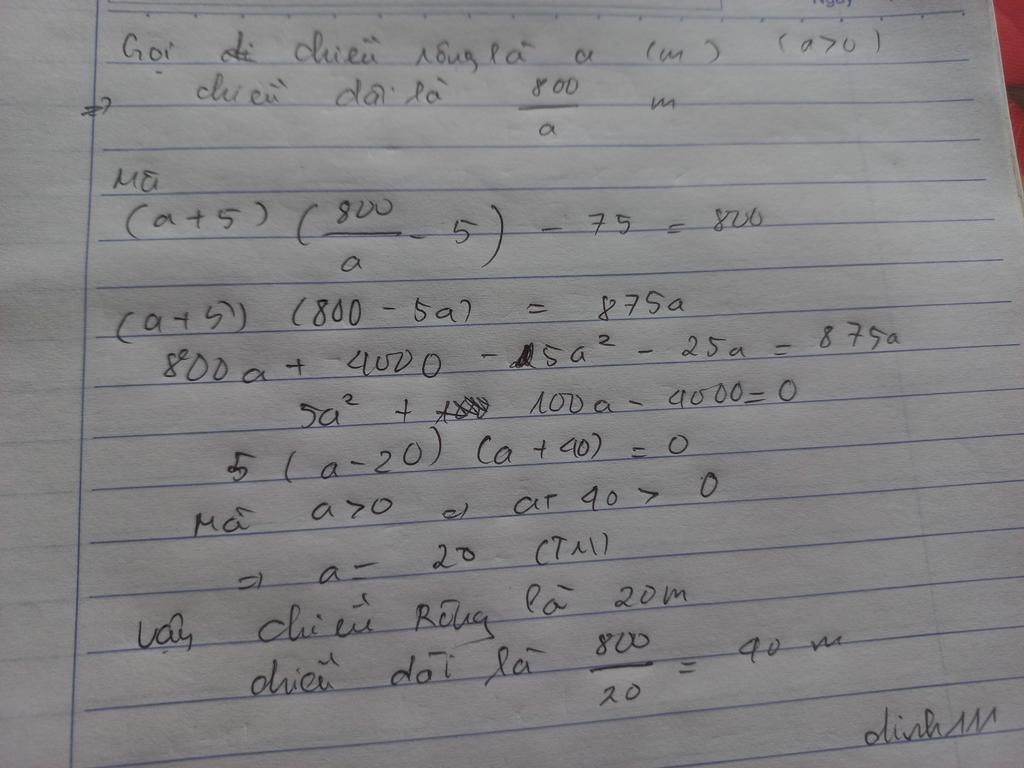 Gọi chiều rộng là a (m) (a>0)
=> chiều dài là 800/a m
Mà
(a+5) (800/a - 5) - 75 = 800
(a+5) (800 - 5a) = 875a
800a + 4000 - 5a² - 25a = 875a
5a² + 100a - 4000 = 0
5 (a-20) (a+40) = 0
Mà a>0 => a+ 40 > 0
=> a = 20 (TM)
Vậy chiều Rộng là 20m
chiều dài là 800/20 = 40 m